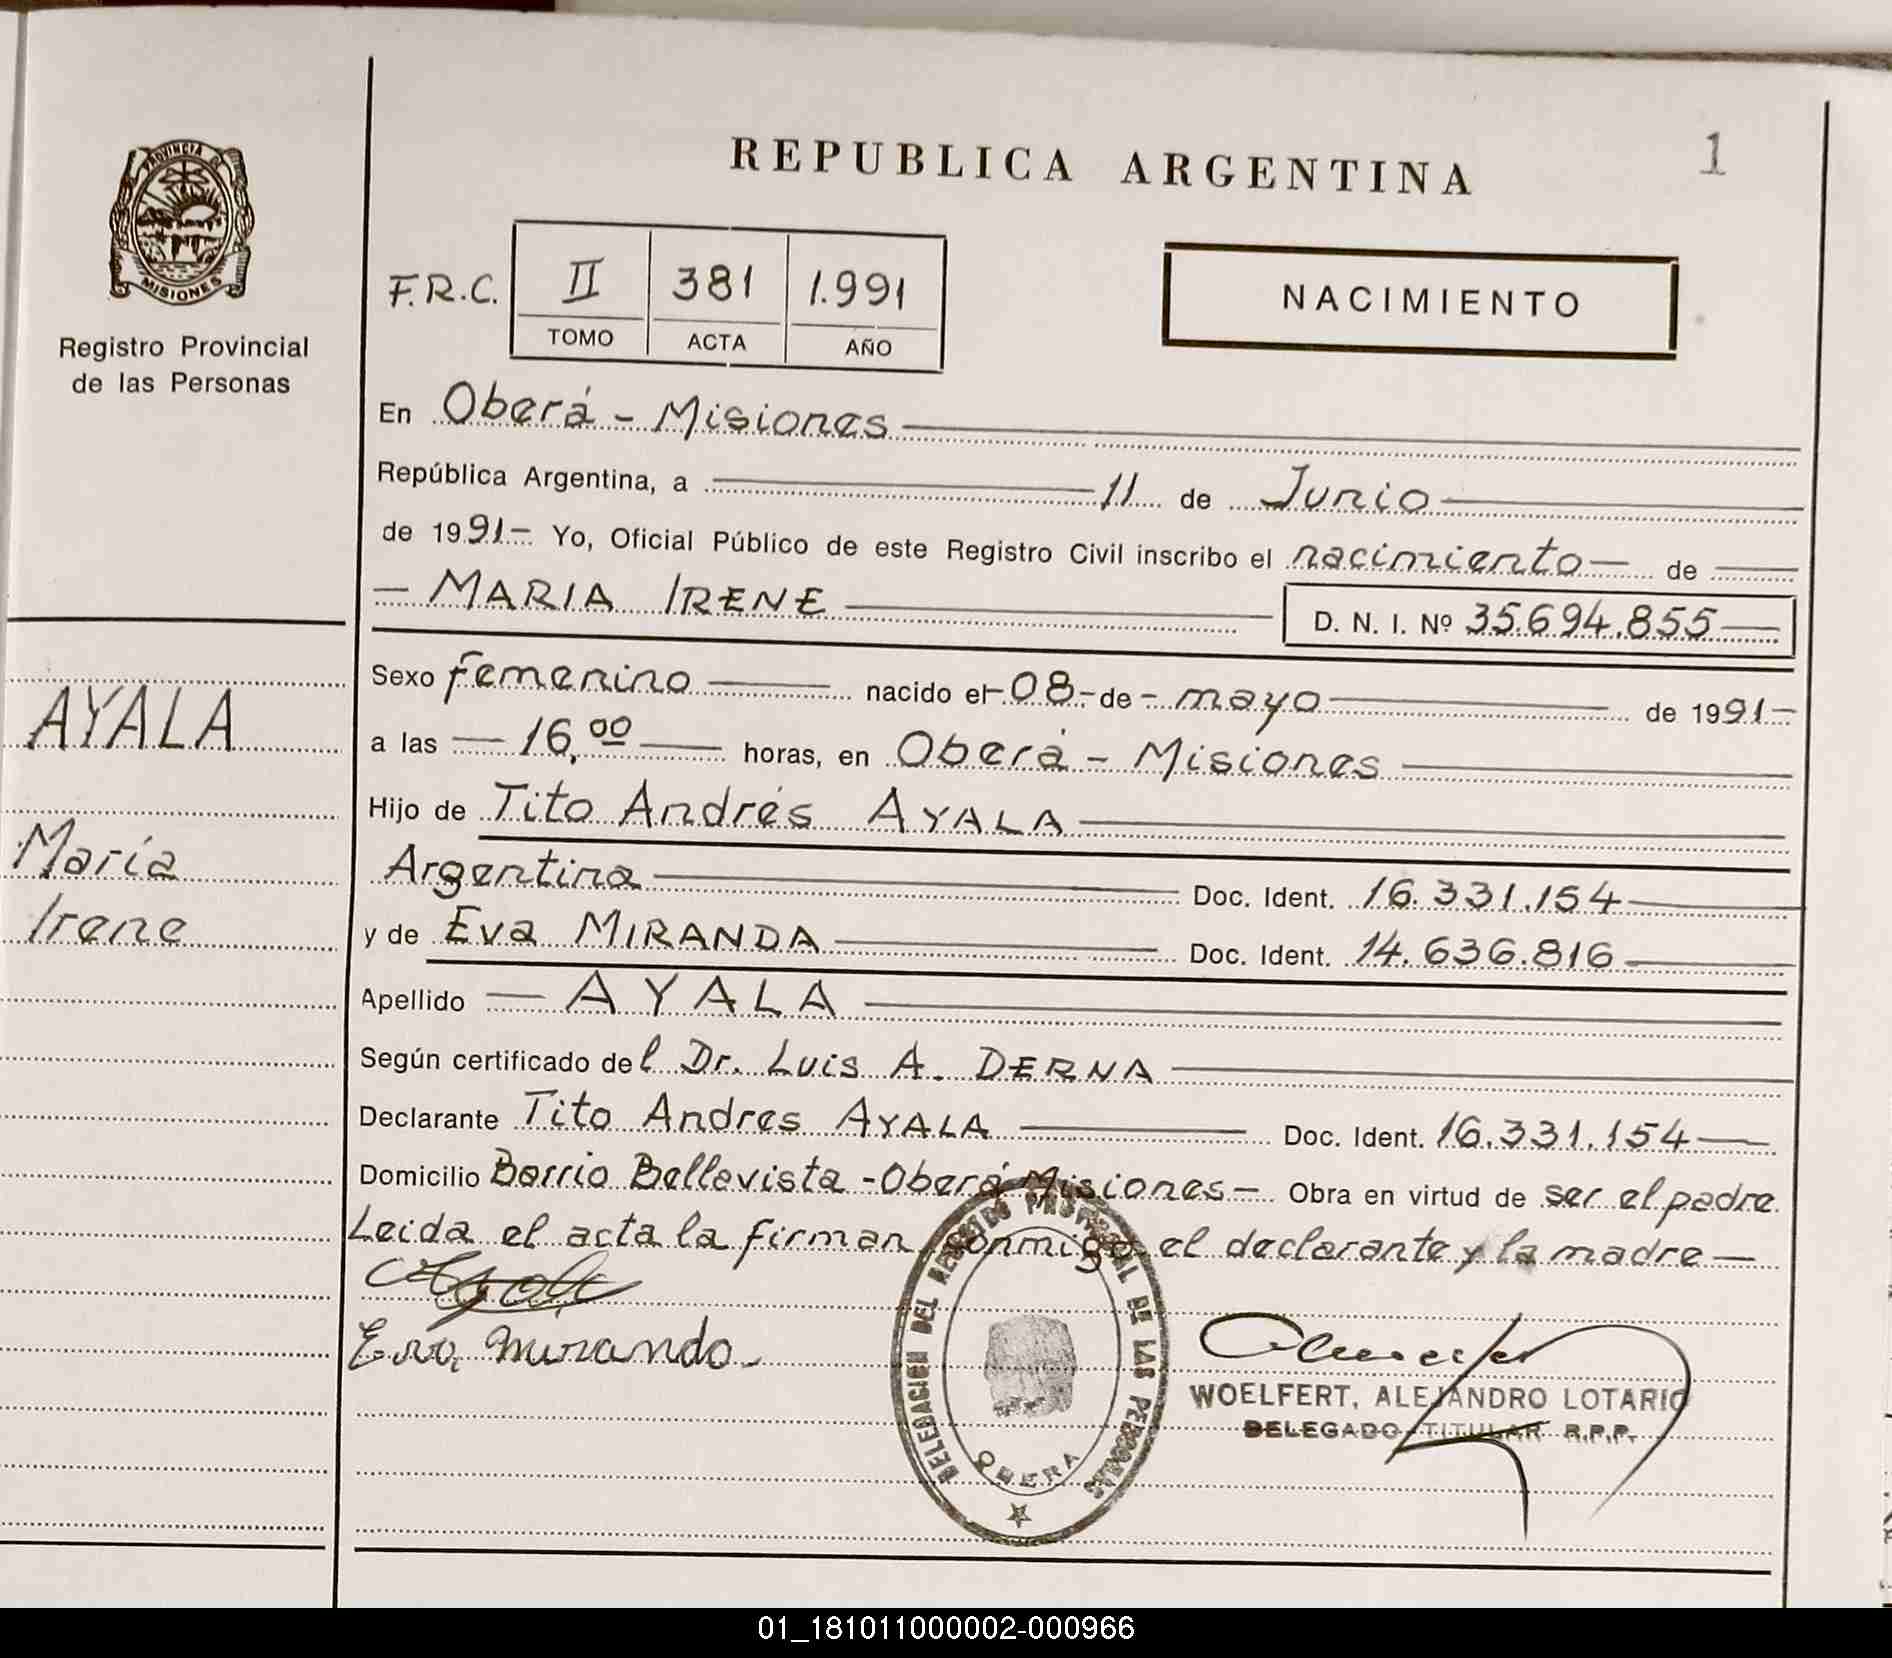 REPUBLICA ARGENTINA
1
PROVINCIA DE
MISIONES
Registro Provincial
de las Personas
F.R.C.
II 381 1.991
TOMO ACTA AÑO
NACIMIENTO
En Oberá - Misiones
República Argentina, a 11 de Junio
de 1991- Yo, Oficial Público de este Registro Civil inscribo el nacimiento de
MARIA IRENE D. N. I. Nº 35.694.855
Sexo Femenino nacido el 08 de mayo de 1991
a las 16,00 horas, en Oberá - Misiones
Hijo de Tito Andrés AYALA
Argentina Doc. Ident. 16.331.154
y de Eva MIRANDA Doc. Ident. 14.636.816
Apellido AYALA
Según certificado del Dr. Luis A. DERNA
Declarante Tito Andres AYALA Doc. Ident. 16.331.154
Domicilio Barrio Bellavista - Oberá Misiones - Obra en virtud de ser el padre
Leida el acta la firman conmigo el declarante y la madre
AYALA
María
Irene
Eva Miranda
DELEGACION DEL REGISTRO PROVINCIAL DE LAS PERSONAS
OBERA
WOELFERT, ALEJANDRO LOTARIO
DELEGADO TITULAR R.P.P.
01_181011000002-000966